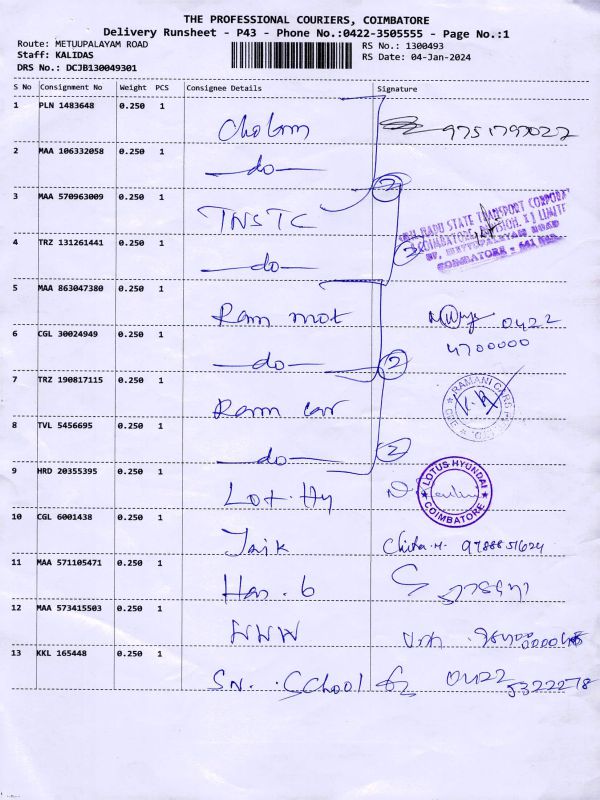 THE PROFESSIONAL COURIERS, COIMBATORE
Delivery Runsheet - P43 - Phone No.:0422-3505555 - Page No.:1
Route: METUUPALAYAM ROAD
Staff: KALIDAS
DRS No.: DCJB130049301
RS No.: 1300493
RS Date: 04-Jan-2024
S No Consignment No Weight PCS Consignee Details Signature
1 PLN 1483648 0.250 1
Cholam 9751797027
2 MAA 106332058 0.250 1
-do-
2
3 MAA 570963009 0.250 1
TNSTC
STATE TRANSPORT CORPORAT
ROAD
COIMBATORE - 641
4 TRZ 131261441 0.250 1
-do-
5 MAA 863047380 0.250 1
Ram mot 0422
4700000
6 CGL 30024949 0.250 1
-do- 2
7 TRZ 190817115 0.250 1
Ram car
RAMANI CARS
8 TVL 5456695 0.250 1
-do- 2
9 HRD 20355395 0.250 1
Lot. Hy
LOTUS HYUNDAI
COIMBATORE
10 CGL 6001438 0.250 1
Jaik
11 MAA 571105471 0.250 1
Har. 6
12 MAA 573415503 0.250 1
WWW
13 KKL 165448 0.250 1
SN. School 0422
5322278